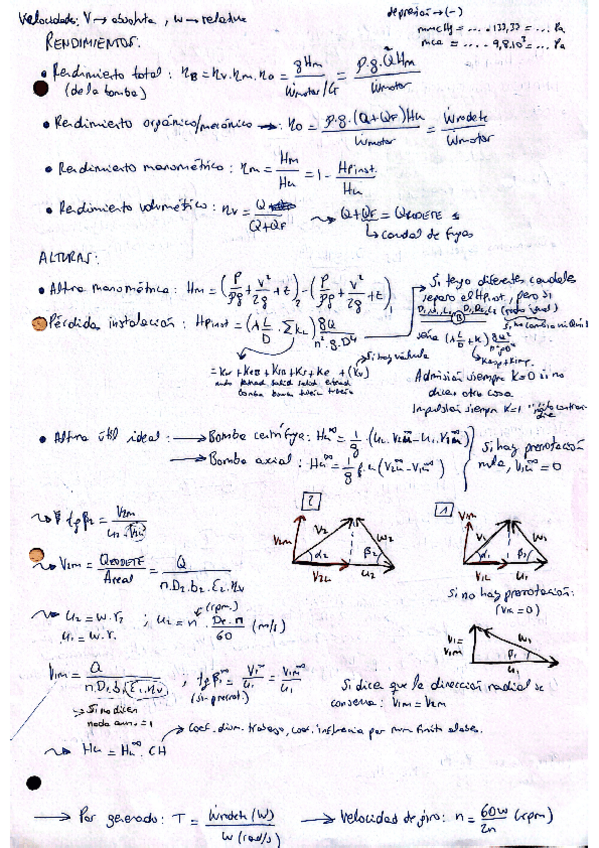 Velocidades: V → absoluta, w → relativa
depresión → (-)
mmcHg = .... · 133,33 = ... Pa
mca = .... · 9,8·10³ = ... Pa
RENDIMIENTOS:
• Rendimiento total: ηB = ηv·ηm·ηo = gHm / (Ẇmotor/G) = ρ·g·Q·Hm / Ẇmotor
(de la bomba)
• Rendimiento orgánico/mecánico → ηo = ρ·g·(Q+QF)Hu / Ẇmotor = Ẇrodete / Ẇmotor
• Rendimiento manométrico: ηm = Hm/Hu = 1 - Hpinst./Hu
• Rendimiento volumétrico: ηv = Q / (Q+QF) ⤳ Q+QF = QRODETE
↳ caudal de fugas
ALTURAS:
• Altura manométrica: Hm = (P/ρg + V²/2g + z)₂ - (P/ρg + V²/2g + z)₁
Si tengo diferentes caudales
separo el Hpinst, pero si
• Pérdida instalación: Hpinst = (λ L/D + Σ kL) 8Q / π²·g·D⁴
sería (λ L/D + k) 8Q² / π²·g·D⁴
Si hay válvula
Admisión siempre K=0 si no
dicen otra cosa
Impulsión siempre K=1
• Altura útil ideal: → Bomba centrífuga: Hu∞ = 1/g · (u₂·V₂u∞ - u₁·V₁u∞)
→ Bomba axial: Hu∞ = 1/g · u (V₂u∞ - V₁u∞)
Si hay prerrotación
nula, V₁u∞ = 0
2
1
V2m V2 w2 α2 β2 V2u u2
V1m V1 w1 α1 β1 V1u u1
⤳ tg β2 = V2m / u2 - V2u
⤳ V2m = QRODETE / Areal = Q / π·D2·b2·ξ2·ηv
si no hay prerrotación:
(V1u = 0)
⤳ u2 = w·r2 ; u2 = π · D2·n / 60 (m/s)
(rpm)
u1 = w·r1
V1 = V1m w1 β1 u1
V1m = Q / π·D1·b1·ξ1·ηv ; tg β1∞ = V1∞ / u1 = V1m∞ / u1
(sin prerrot.)
Si no dicen
nada = 1
Si dice que la dirección radial se
conserva: V1m = V2m
⤳ Hu = Hu∞ · CH
→ Coef. dism. trabajo, coef. influencia por num finito alabes.
→ Par generado: T = Ẇrodete (W) / w (rad/s)
→ Velocidad de giro: n = 60w / 2π (rpm)